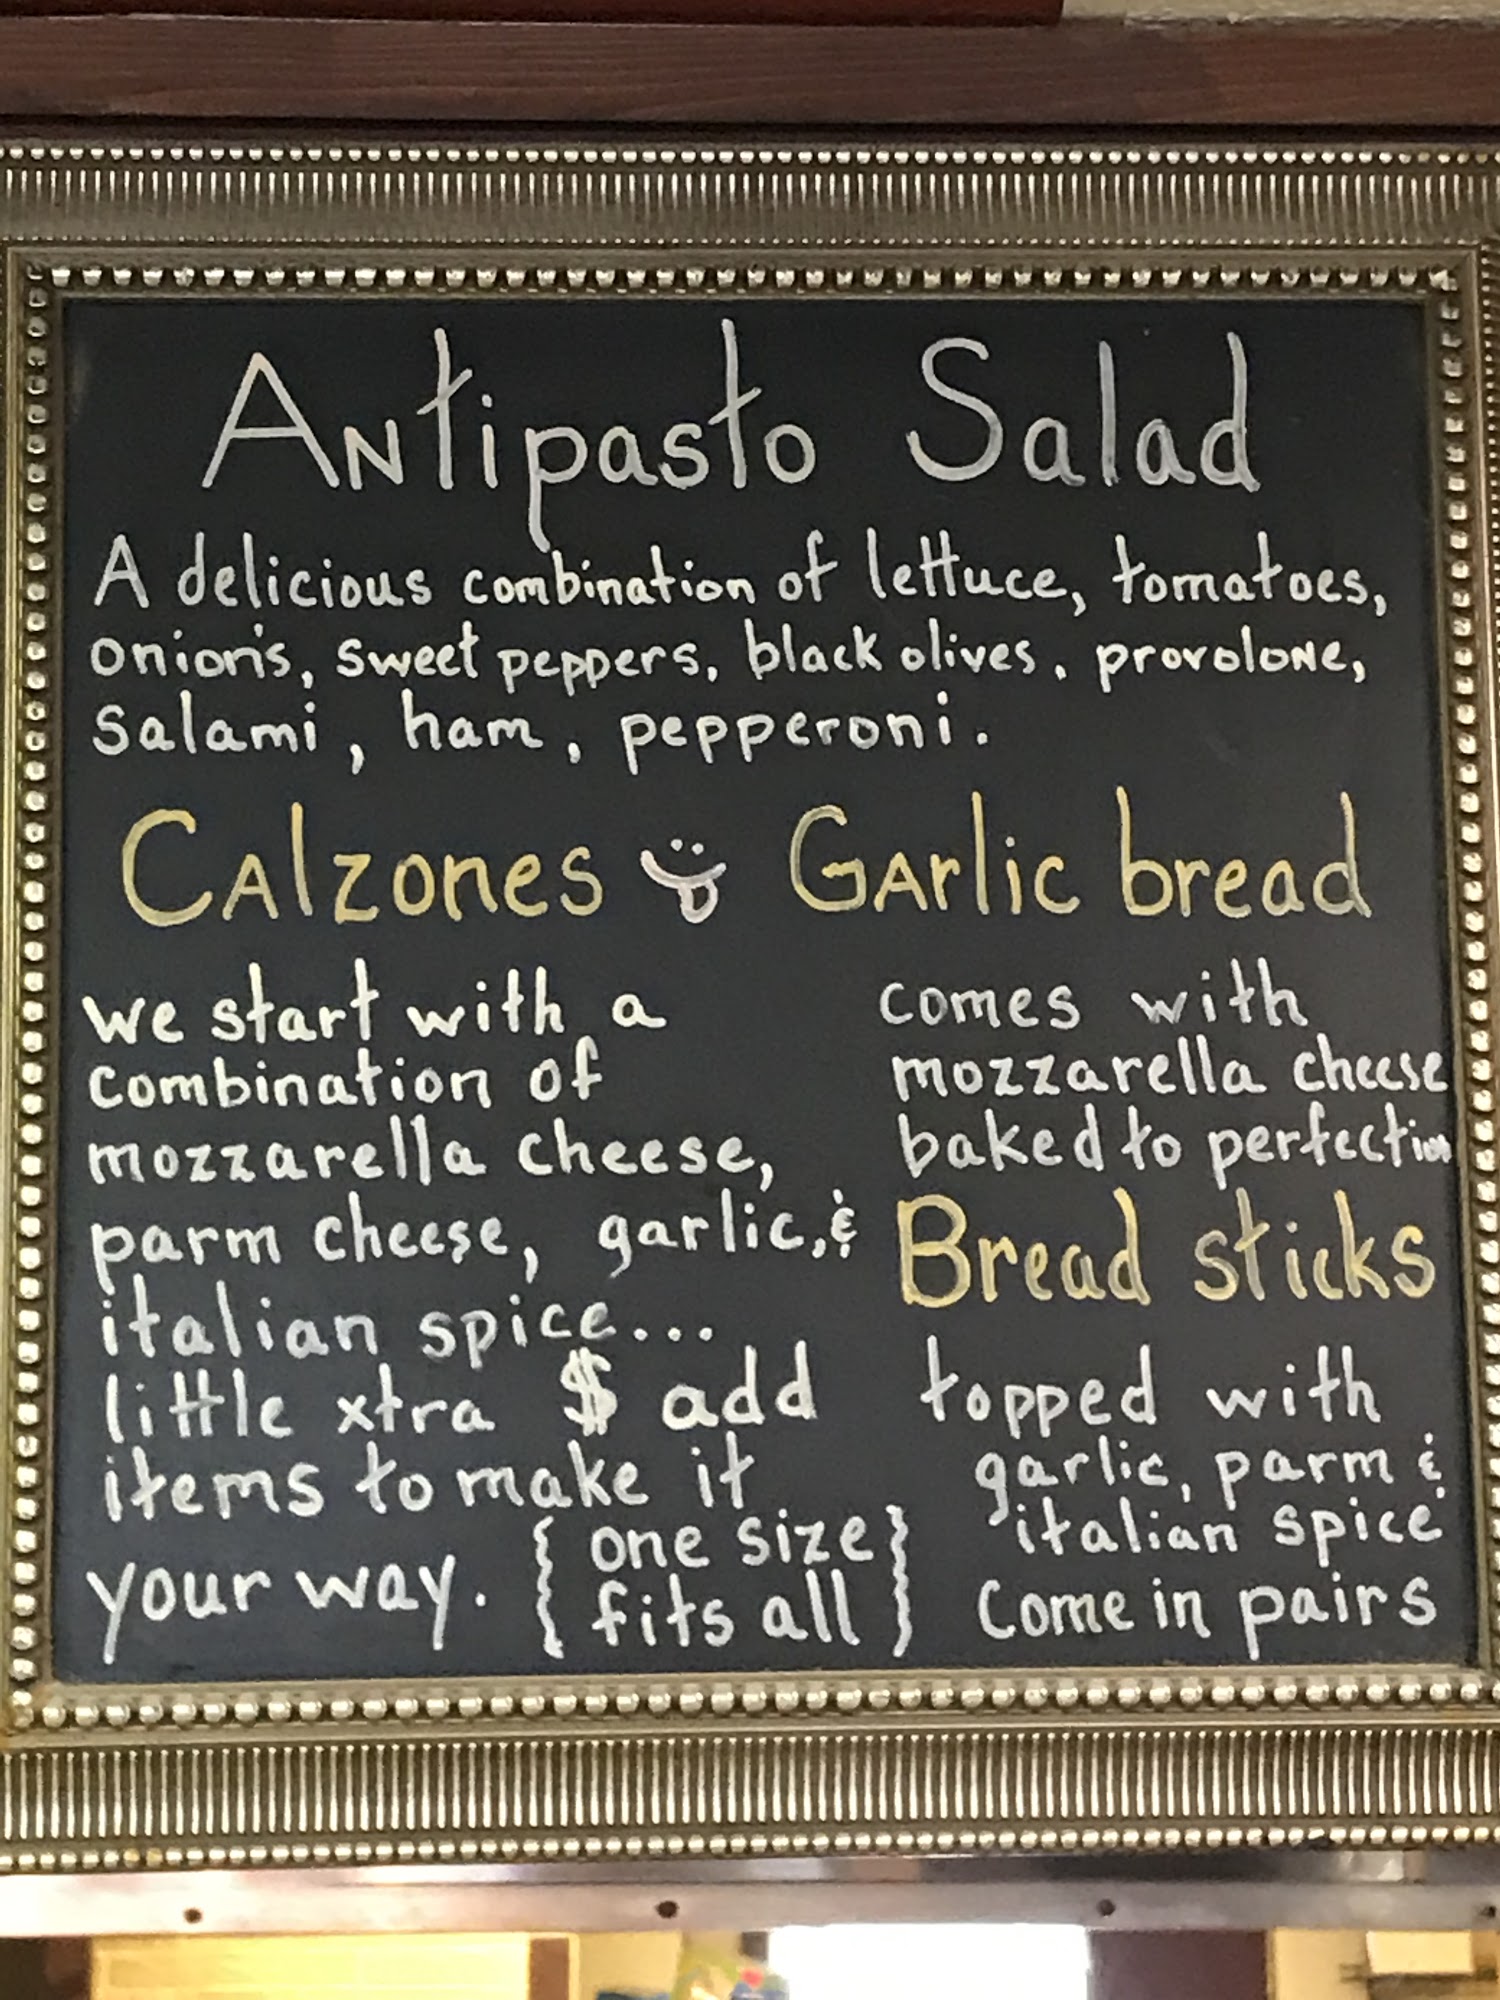 Antipasto Salad
A delicious combination of lettuce, tomatoes,
onion's, sweet peppers, black olives, provolone,
Salami, ham, pepperoni.
Calzones
we start with a
combination of
mozzarella cheese,
parm cheese, garlic, &
italian spice...
little xtra $ add
items to make it
your way.
{ one size
fits all }
Garlic bread
comes with
mozzarella cheese
baked to perfection
Bread sticks
topped with
garlic, parm &
italian spice
Come in pairs